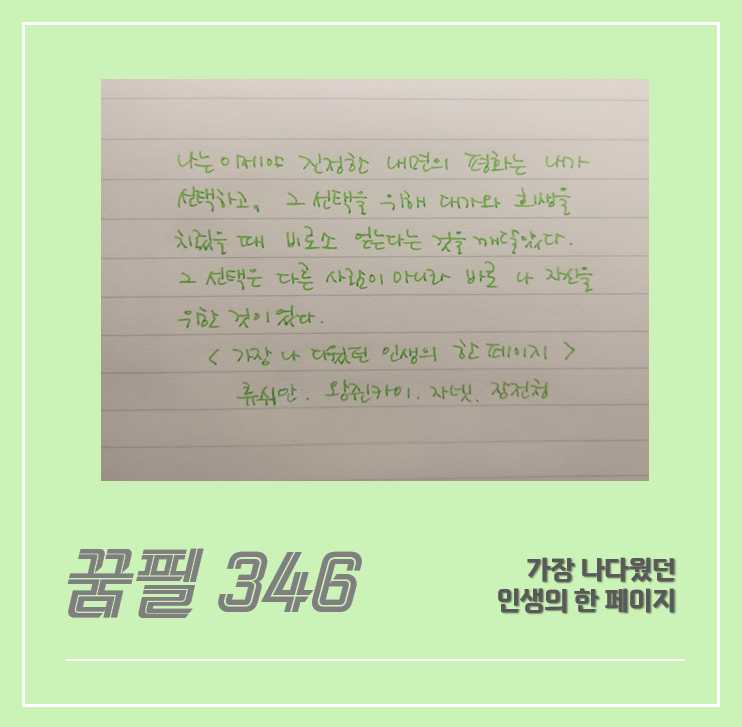 나는 이제야 진정한 내면의 평화는 내가
선택하고, 그 선택을 위해 대가와 희생을
치렀을 때 비로소 얻는다는 것을 깨달았다.
그 선택은 다른 사람이 아니라 바로 나 자신을
위한 것이었다.
< 가장 나 다웠던 인생의 한 페이지 >
류쉬안. 왕쥔카이. 자넷. 장전청
꿈필 346
가장 나다웠던
인생의 한 페이지